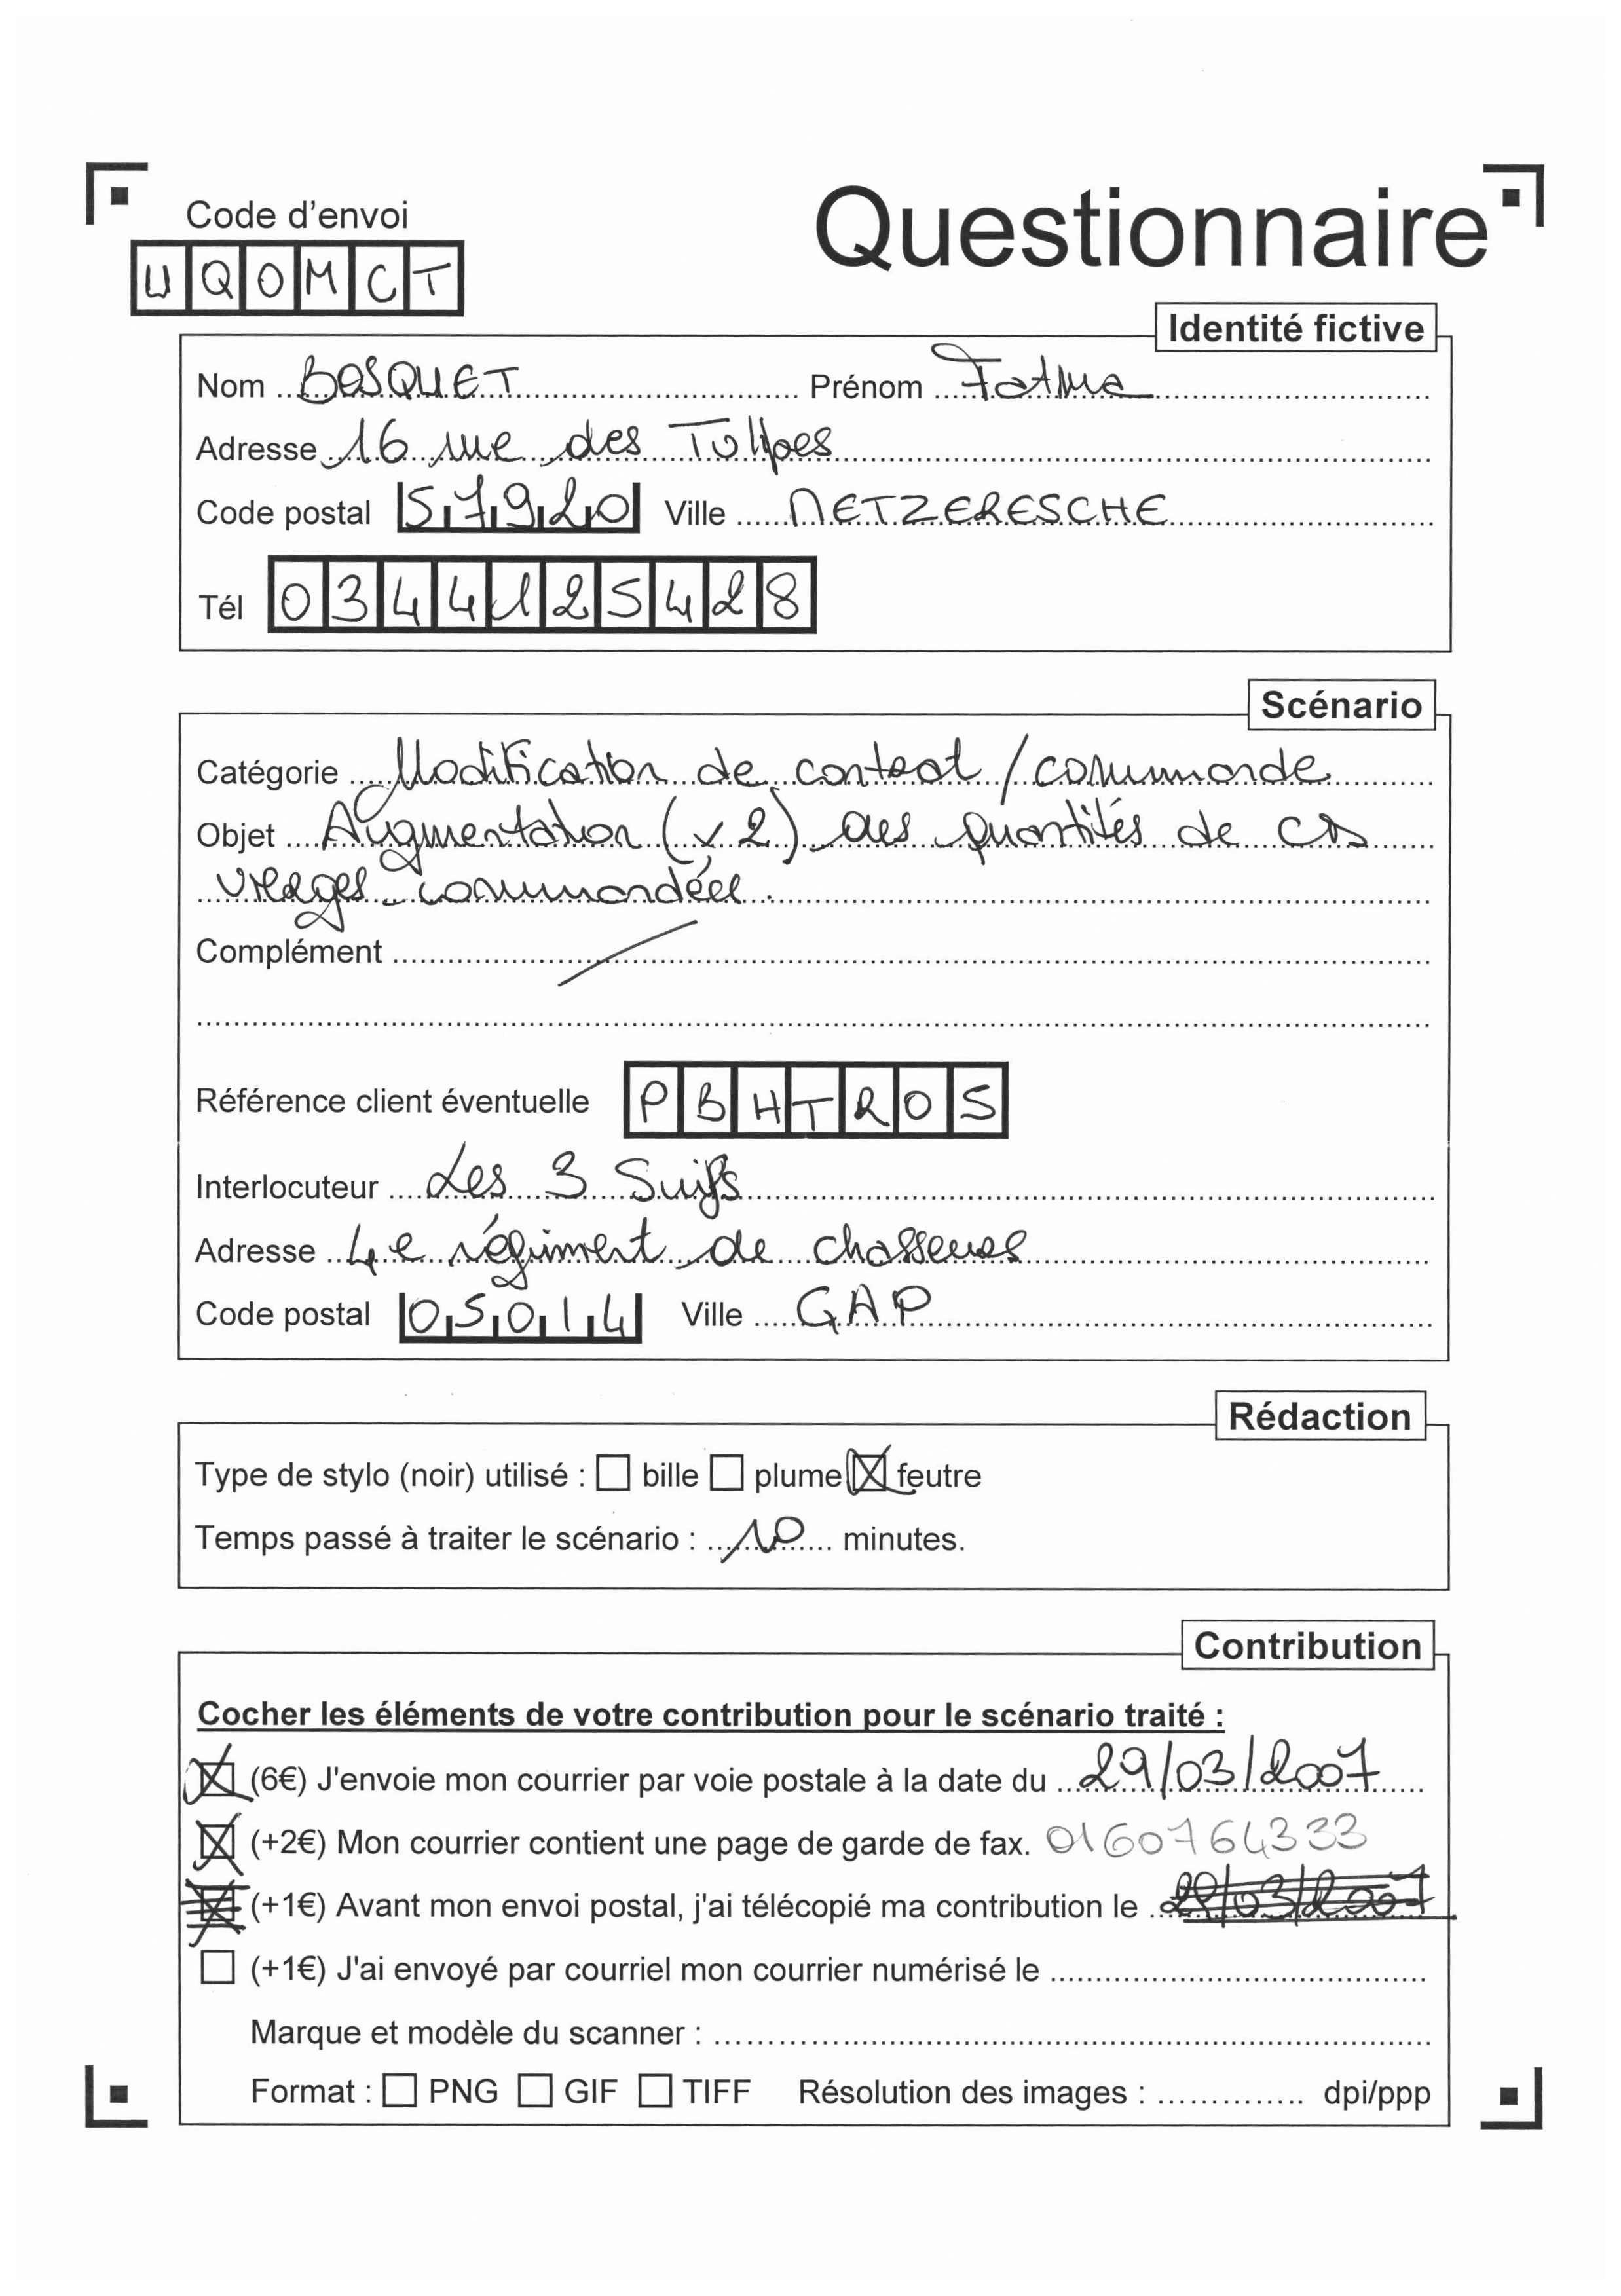 Code d'envoi
Questionnaire
UQOMCT
Identité fictive
Nom BOSQUET Prénom Fatma
Adresse 16 rue des Tulipes
Code postal 57920 Ville METZERESCHE
Tél 0344125428
Scénario
Catégorie Modification de contrat / commande
Objet Augmentation (x 2) des quantités de CDs
vierges commandées.
Complément /
Référence client éventuelle PBHTROS
Interlocuteur Les 3 Suifs
Adresse 4e régiment de chasseurs
Code postal 05014 Ville GAP
Rédaction
Type de stylo (noir) utilisé : bille plume feutre
Temps passé à traiter le scénario : 10 minutes.
Contribution
Cocher les éléments de votre contribution pour le scénario traité :
(6€) J'envoie mon courrier par voie postale à la date du 29/03/2007
(+2€) Mon courrier contient une page de garde de fax. 0160764333
(+1€) Avant mon envoi postal, j'ai télécopié ma contribution le 29/03/2007
(+1€) J'ai envoyé par courriel mon courrier numérisé le
Marque et modèle du scanner :
Format : PNG GIF TIFF Résolution des images : dpi/ppp